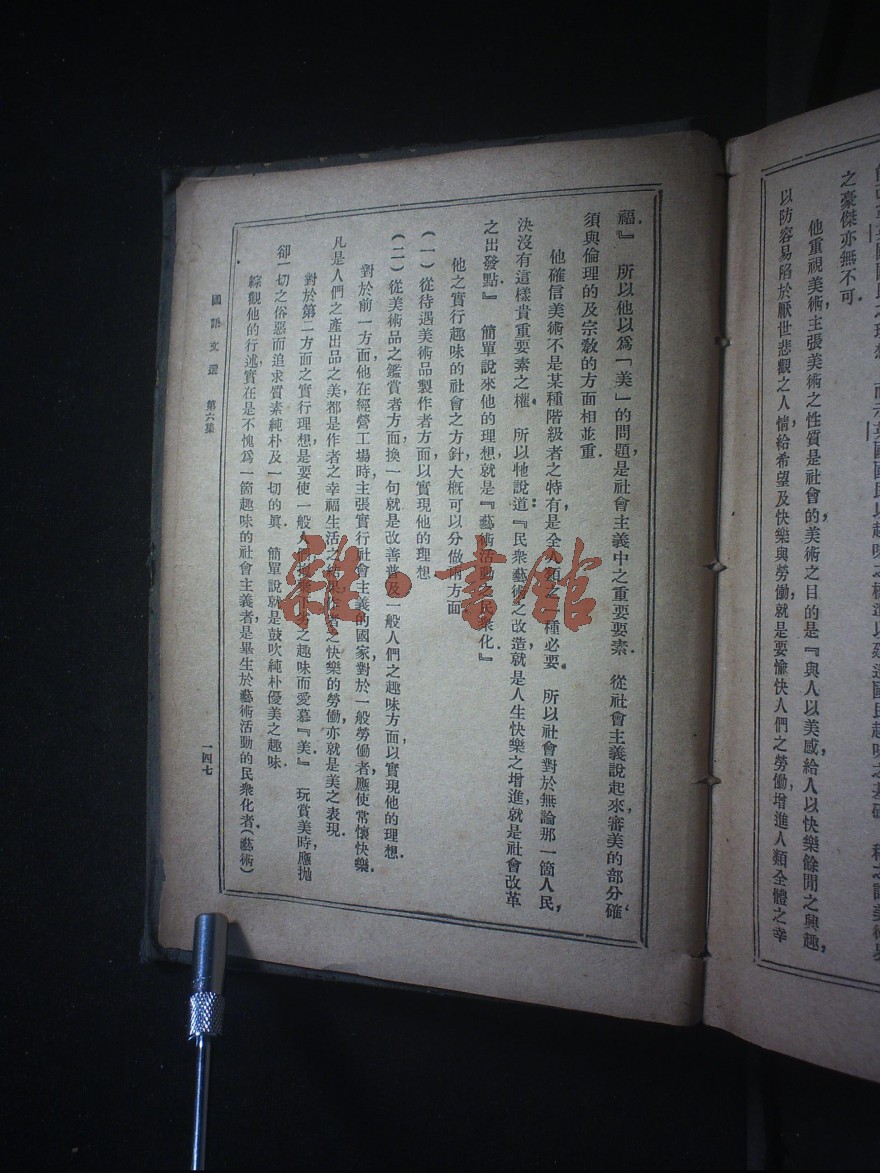 之豪傑亦無不可．
他重視美術，主張美術之性質是社會的美術之目的是『與人以美感給人以快樂餘閒之興趣，
以防容易陷於厭世悲觀之人，情給希望及快樂與勞働，就是要愉快人們之勞働，增進人類全體之幸
福．』　所以他以爲「美」的問題，是社會主義中之重要要素．　從社會主義說起來，審美的部分確
須與倫理的及宗敎的方面相並重．
他確信美術不是某種階級者之特有，是全人類之一種必要．　所以社會對於無論那一箇人民，
決沒有這樣貴重要素之權．　所以牠說道：『民衆藝術之改造就是人生快樂之增進，就是社會改革
之出發點．』　簡單說來他的理想，就是『藝術活動之民衆化．』
他之實行趣味的社會之方針，大概可以分做兩方面
（一）從待遇美術品製作者方面，以實現他的理想
（二）從美術品之鑑賞者方面，換一句就是改善普及一般人們之趣味方面以實現他的理想．
對於前一方面，他在經營工場時，主張實行社會主義的國家，對於一般勞働者，應使常懷快樂．
凡是人們之產出品之美，都是作者之幸福生活之結果，作者之快樂的勞働，亦就是美之表現．
對於第二方面之實行理想是要使一般人們之趣味而愛慕『美．』　玩賞美時，應拋
卻一切之俗惡而追求質素純朴及一切的眞．　簡單說就是鼓吹純朴優美之趣味．
綜觀他的行述，實在是不愧爲一箇趣味的社會主義者，是畢生於藝術活動的民衆化者．（藝術）
國語文選　第六集
一四七
雜·書館